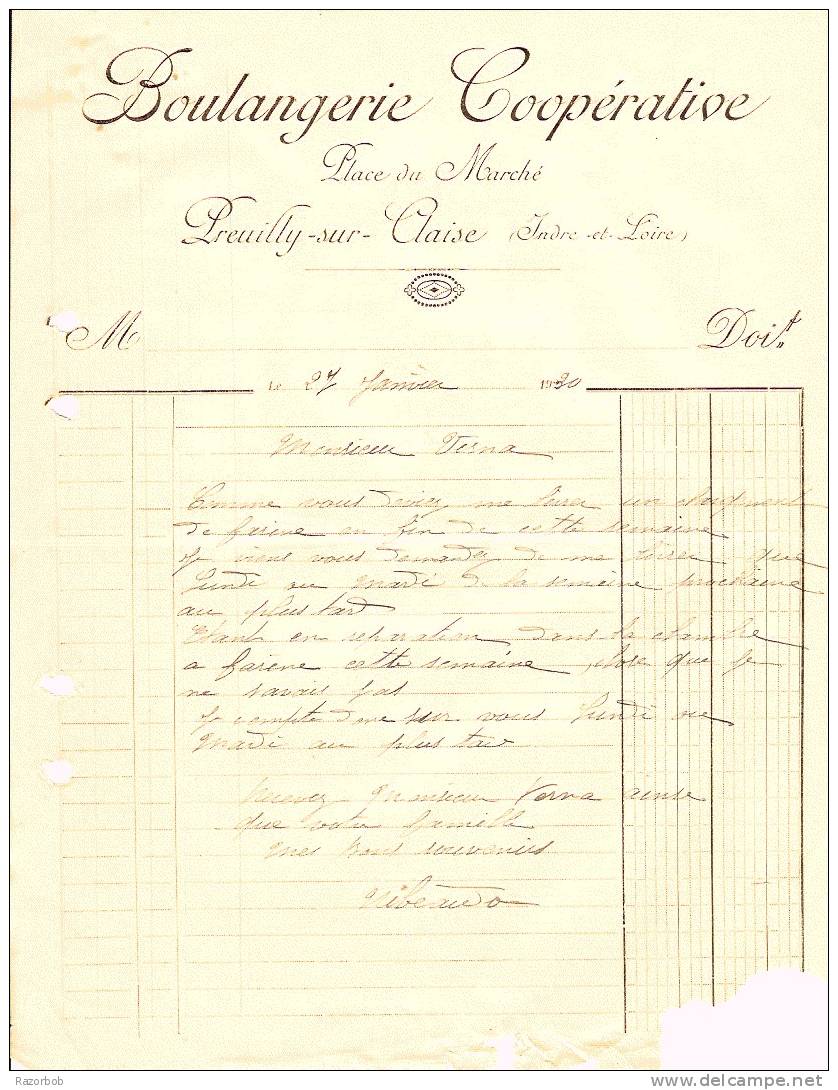 Boulangerie Coopérative
Place du Marché
Preuilly-sur-Claise (Indre-et-Loire)
M Doit
Le 27 Janvier 1930
Monsieur Verna
Comme vous deviez me livrer un chargement
de farine en fin de cette semaine
Je viens vous demander de me livrer que
Lundi ou Mardi de la semaine prochaine
au plus tard
Etant en reparation dans la chambre
a farine cette semaine, chose que je
ne savais pas
Je compte donc sur vous Lundi ou
Mardi au plus tard
Recevez Monsieur Verna ainsi
que votre famille
mes bons souvenirs
Ribeaudo
Razorbob
delcampe.net